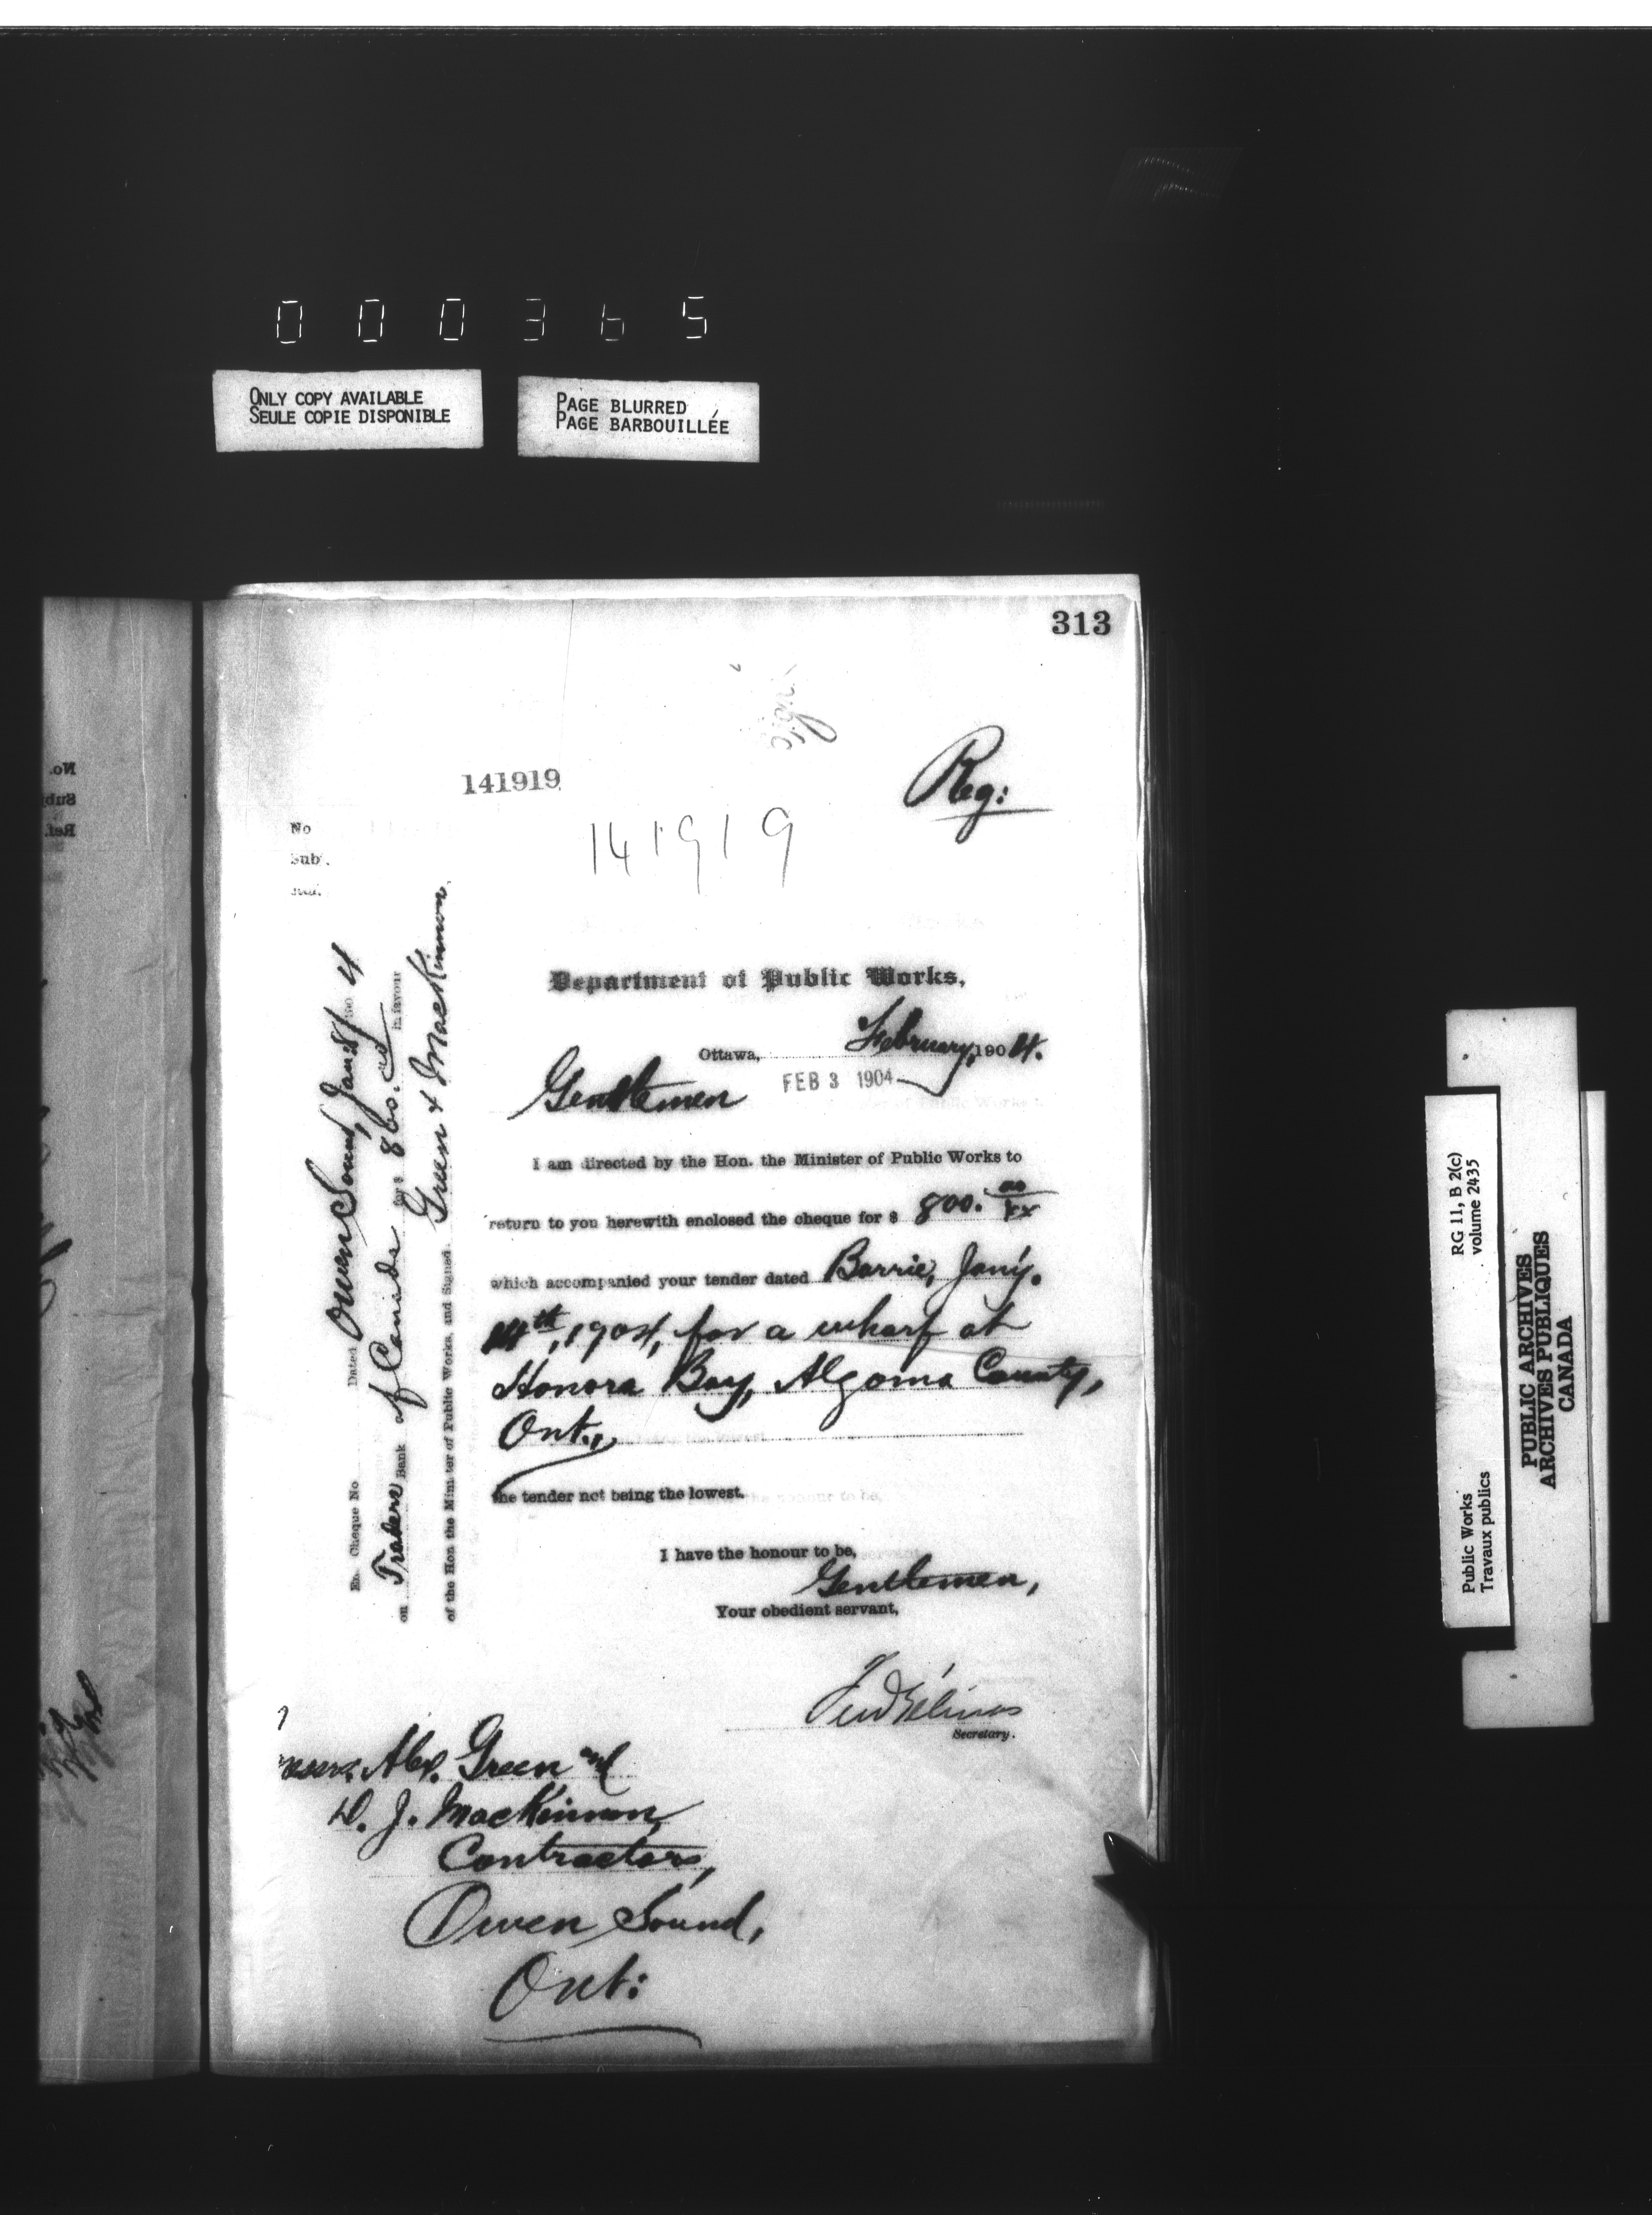 000365
ONLY COPY AVAILABLE
SEULE COPIE DISPONIBLE
PAGE BLURRED
PAGE BARBOUILLÉE
313
141919
Reg:
141919
No
Sub'.
Department of Public Works,
Ottawa, February, 1904.
FEB 3 1904
Gentlemen
I am directed by the Hon. the Minister of Public Works to
return to you herewith enclosed the cheque for $ 800. 00/xx
which accompanied your tender dated Barrie, Jany.
14th, 1904, for a wharf at
Honora Bay, Algoma County,
Ont.,
the tender not being the lowest.
I have the honour to be,
Gentlemen,
Your obedient servant,
Fred Gélinas
Secretary.
Messrs. Alex. Green and
D. J. MacKinnon,
Contractors,
Owen Sound,
Ont:
En. Cheque No Dated Owen Sound, Jan: 8/ 190 4
on Traders Bank of Canada for $ 800. in favour
of the Hon the Minister of Public Works, and Signed. Green & MacKinnon.
No.
Sub
Ref.
RG 11, B 2(c)
volume 2435
Public Works
Travaux publics
PUBLIC ARCHIVES
ARCHIVES PUBLIQUES
CANADA